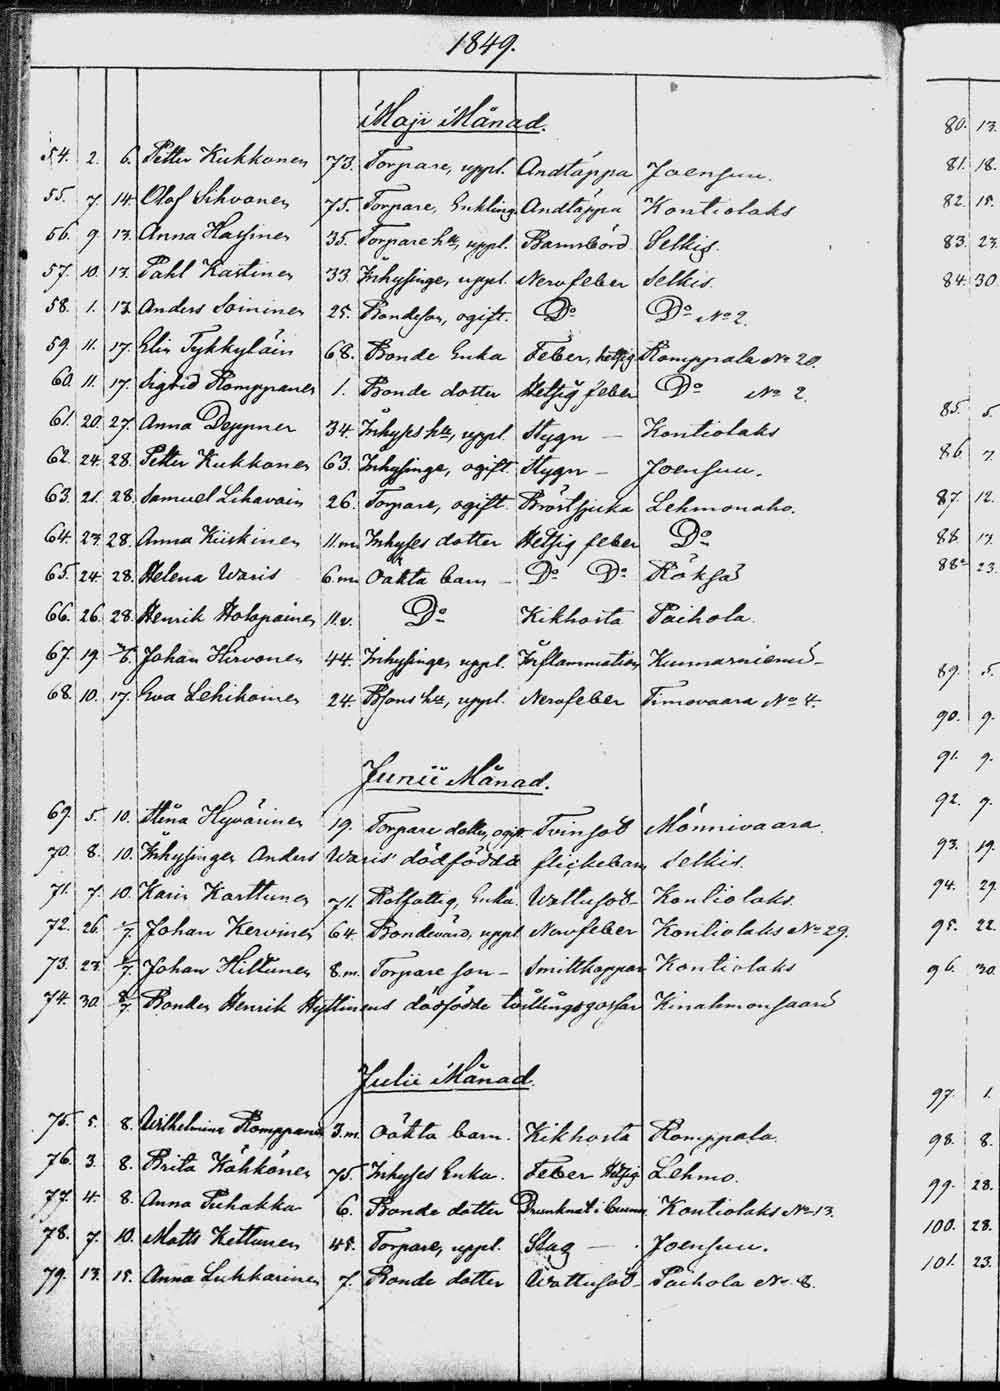 1849.
Maji Månad.
54. 2. 6. Petter Kukkonen 73. Torpare, uppl. Andtäppa Joensuu.
55. 7. 14. Olof Sihvonen 75. Torpare, Enkling Andtäppa Kontiolaks
56. 9. 13. Anna Hassinen 35. Torpare h:u, uppl. Barnsbörd Selkis.
57. 10. 13. Påhl Karttinen 33. Inhysinge, uppl. Nervfeber Selkis.
58. 1. 13. Anders Soininen 25. Bondeson, ogift. D:o D:o No 2.
59. 11. 17. Elin Tykkyläin 68. Bonde Enka Feber, hetsig Romppala No 20.
60. 11. 17. Sigrid Romppanen 1. Bonde dotter Hetsig feber D:o No 2.
61. 20. 27. Anna 34. Inhyses h:u, uppl. Stygn – Kontiolaks
62. 24. 28. Petter Kukkonen 63. Inhysinge, ogift Stygn – Joensuu.
63. 21. 28. Samuel Lihavain 26. Torpare, ogift Bröstsjuka Lehmonaho.
64. 23. 28. Anna Kiiskinen 11.m. Inhyses dotter Hetsig feber D:o
65. 24. 28. Helena Waris 6.m. Oäkta barn – D:o D:o
66. 26. 28. Henrik Holopainen 11.v. D:o Kikhosta Paihola
67. 19. Johan Hirvonen 44. Inhysinge, uppl. Inflammation Kunnasniemi –
68. 10. 17. Eva Lehikoinen 24. Bsons h:u, uppl. Nervfeber Timovaara No 4.
Junii Månad.
69. 5. 10. Stina Hyvärinen 19. Torpare dotter, ogift Tvinsot Mönnivaara
70. 8. 10. Inhysingen Anders Waris' dödfödda flickebarn Selkis.
71. 7. 10. Karin Karttunen 71. Rotfattig, Enka Wattusot – Kontiolaks.
72. 26. Johan Kervinen 64. Bondevärd, uppl Nervfeber Kontiolaks No 29.
73. 23. Johan Hiltunen 8.m. Torpare son – Smittkoppar Kontiolaks
74. 30. Bonden Henrik Hyttinens dödfödde tvillingsgossar Kinahmonsaari
Julii Månad.
75. 5. 8. Wilhelmina Romppanen 3.m. Oäkta barn. Kikhosta Romppala.
76. 3. 8. Brita Kähkönen 75. Inhyses Enka. Feber Hetsig. Lehmo.
77. 4. 8. Anna Puhakka 6. Bonde dotter Drunknat i brunn. Kontiolaks No 13.
78. 7. 10. Matts Kettunen 48. Torpare, uppl. Slag – Joensuu.
79. 13. 15. Anna Lukkarinen 7. Bonde dotter Wattusot – Paihola No 8.
80. 13.
81. 18.
82. 15.
83. 23.
84. 30.
85. 5.
86. 7.
87. 12.
88. 13.
88a 23.
89. 5.
90. 9.
91. 9.
92. 9.
93. 19.
94. 29.
95. 22.
96. 30.
97. 1.
98. 8.
99. 28.
100. 28.
101. 23.